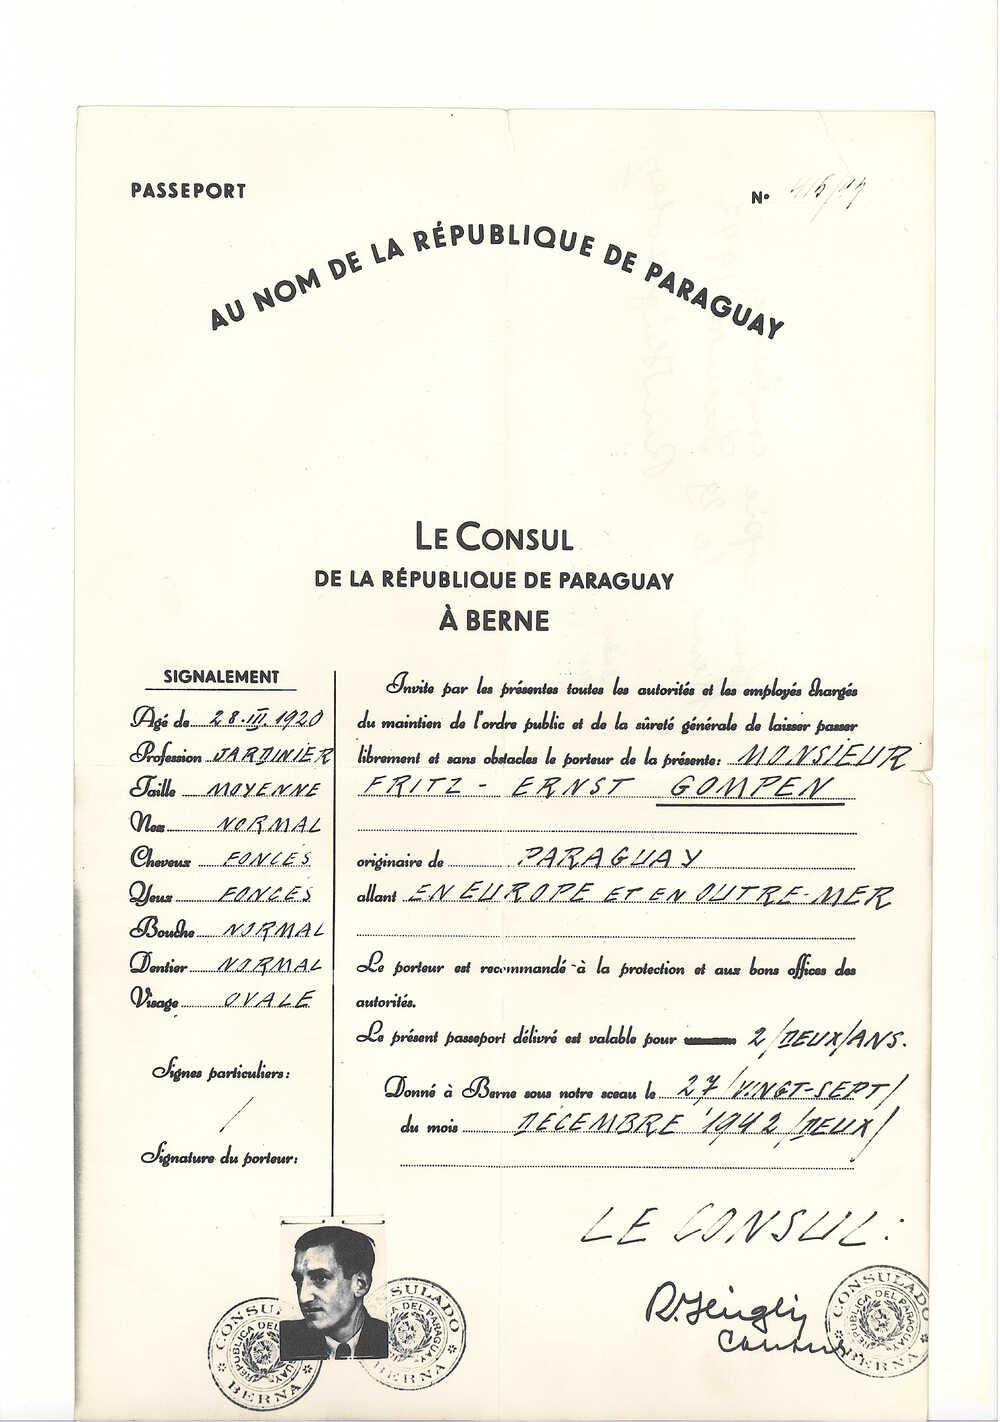 PASSEPORT
Nº
AU NOM DE LA RÉPUBLIQUE DE PARAGUAY
LE CONSUL
DE LA RÉPUBLIQUE DE PARAGUAY
À BERNE
SIGNALEMENT
Agé de 28.III.1920
Profession JARDINIER
Taille MOYENNE
Nez NORMAL
Cheveux FONCÉS
Yeux FONCÉS
Bouche NORMAL
Dentier NORMAL
Visage OVALE
Signes particuliers:
/
Signature du porteur:
Invite par les présentes toutes les autorités et les employés chargés
du maintien de l'ordre public et de la sûreté générale de laisser passer
librement et sans obstacles le porteur de la présente: MONSIEUR
FRITZ - ERNST GOMPEN
originaire de PARAGUAY
allant EN EUROPE ET EN OUTRE-MER
Le porteur est recommandé à la protection et aux bons offices des
autorités.
Le présent passeport délivré est valable pour 2/DEUX/ANS.
Donné à Berne sous notre sceau le 27/VINGT-SEPT/
du mois DÉCEMBRE 1942/DEUX/
LE CONSUL:
R. Hügli
Consul
CONSULADO
REPÚBLICA DEL PARAGUAY
BERNA
CONSULADO
REPÚBLICA DEL PARAGUAY
BERNA
CONSULADO
REPÚBLICA DEL PARAGUAY
BERNA